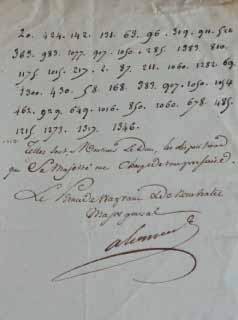 20. 424. 142. 131. 63. 96. 319. 911. 520
363. 983. 1077. 907. 1050. 285. 1383. 810.
1175. 1015. 217. 2. 87. 211. 1060. 1282. 69.
1300. 430. 58. 168. 383. 907. 1050. 1054
462. 929. 649. 1016. 850. 1060. 678. 485.
1215. 1273. 1317. 1346.
Telles sont, Monsieur le Duc, les dispositions
que Sa Majesté me charge de vous prescrire.
Le Prince de Wagram
Major général